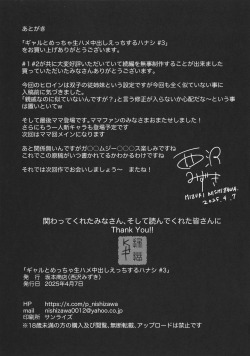 あとがき
「ギャルとめっちゃ生ハメ中出しえっちするハナシ #3」
をお買い上げありがとうございます。
#1 #2が共に大変好評いただいていて続編を無事制作することが出来ました
買っていただいたみなさんありがとうございます。
今回のヒロインは双子の従姉妹という設定ですが今回も全く似ていない事に
入稿前に気づきました。
「親戚なのに似ていないんすが?」と言う修正が入らないか心配だな～という事は
置いといてw
そして最後ママ登場です。ママファンのみなさまおまたせしました!
さらにもう一人新キャラも登場予定です
次回はママ回メインになります
それでは次回作でお会いしましょう～ またね!
西沢
みずき
MIZUKI NISHIZAWA
2025.4.7
関わってくれたみなさん、そして読んでくれた皆さんに
Thank You!!
「ギャルとめっちゃ生ハメ中出しえっちするハナシ #3」
発 行 坂本商店(西沢みずき)
発行日 2025年4月7日
HP https://x.com/p_nishizawa
mail nishizawa0012@yahoo.co.jp
印刷所 サンライズ
※18歳未満の方の購入及び閲覧、無断転載、アップロードは禁止です